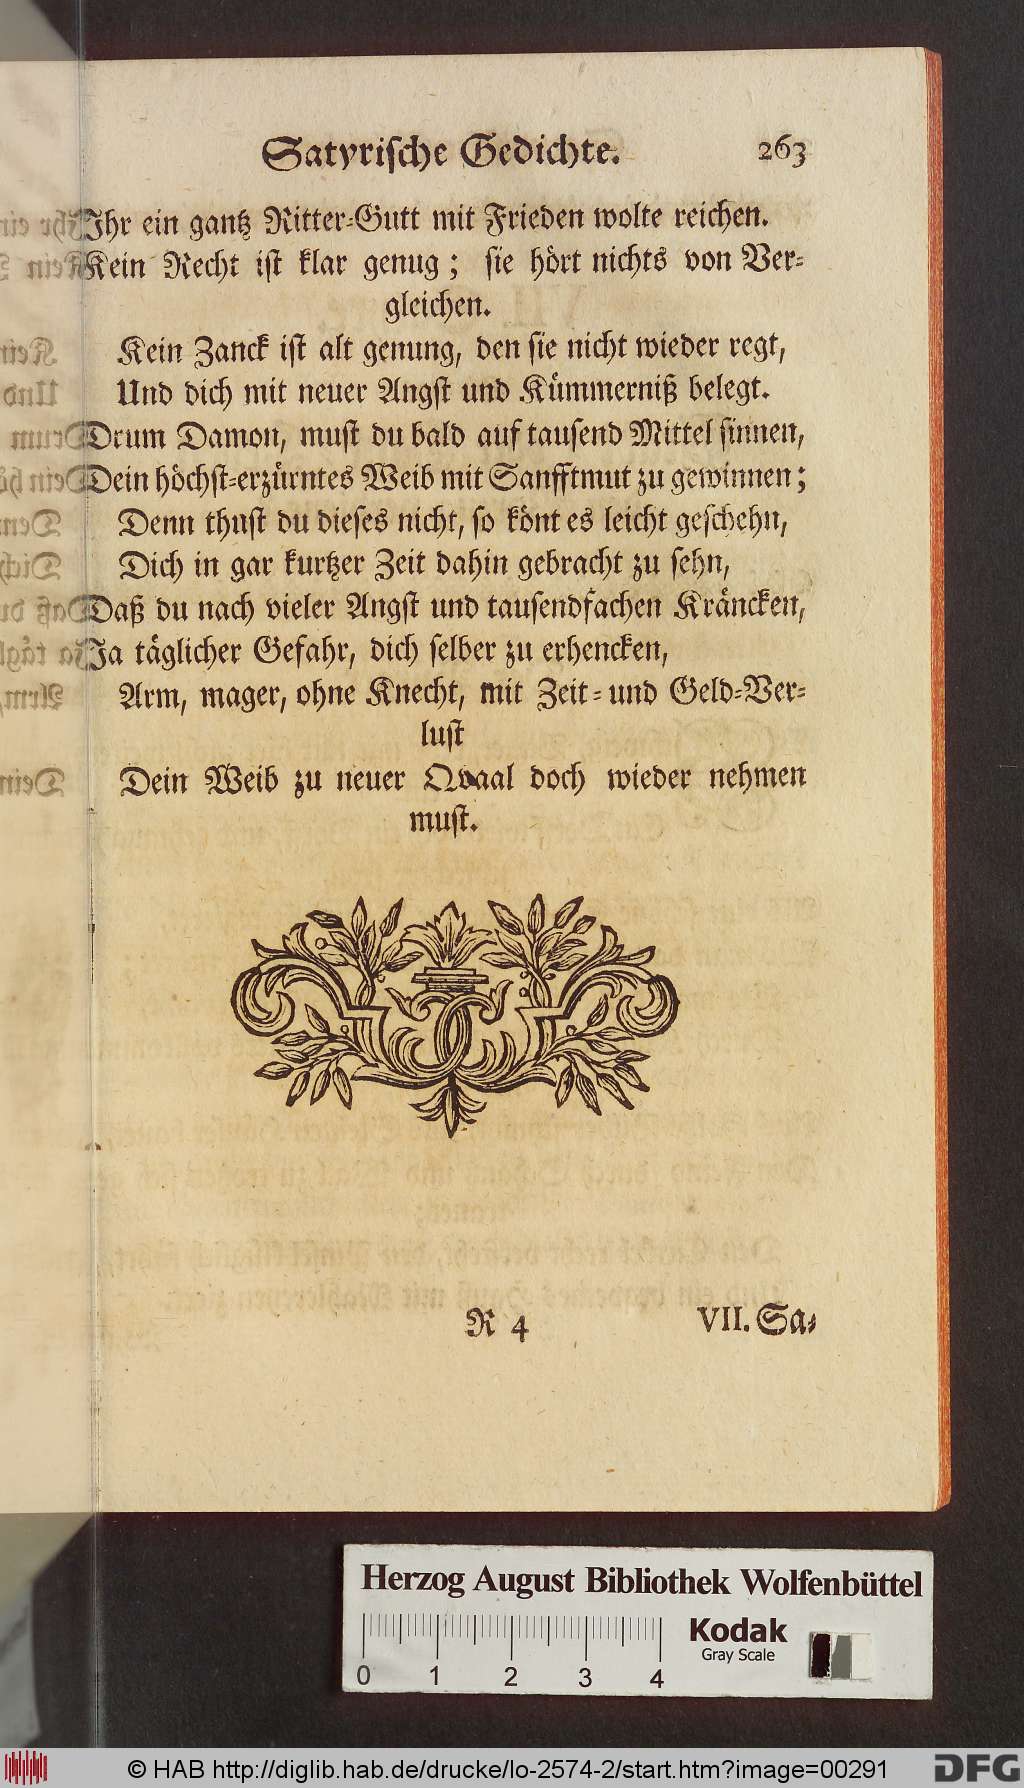 Satyrische Gedichte. 263
Ihr ein gantz Ritter-Gutt mit Frieden wolte reichen.
Kein Recht ist klar genug; sie hört nichts von Ver-
gleichen.
Kein Zanck ist alt genung, den sie nicht wieder regt,
Und dich mit neuer Angst und Kümmerniß belegt.
Drum Damon, must du bald auf tausend Mittel sinnen,
Dein höchst-erzürntes Weib mit Sanfftmut zu gewinnen;
Denn thust du dieses nicht, so könt es leicht geschehn,
Dich in gar kurtzer Zeit dahin gebracht zu sehn,
Daß du nach vieler Angst und tausendfachen Kräncken,
Ja täglicher Gefahr, dich selber zu erhencken,
Arm, mager, ohne Knecht, mit Zeit- und Geld-Ver-
lust
Dein Weib zu neuer Qvaal doch wieder nehmen
must.
R 4 VII. Sa-
Herzog August Bibliothek Wolfenbüttel
Kodak
Gray Scale
0 1 2 3 4
© HAB http://diglib.hab.de/drucke/lo-2574-2/start.htm?image=00291
DFG